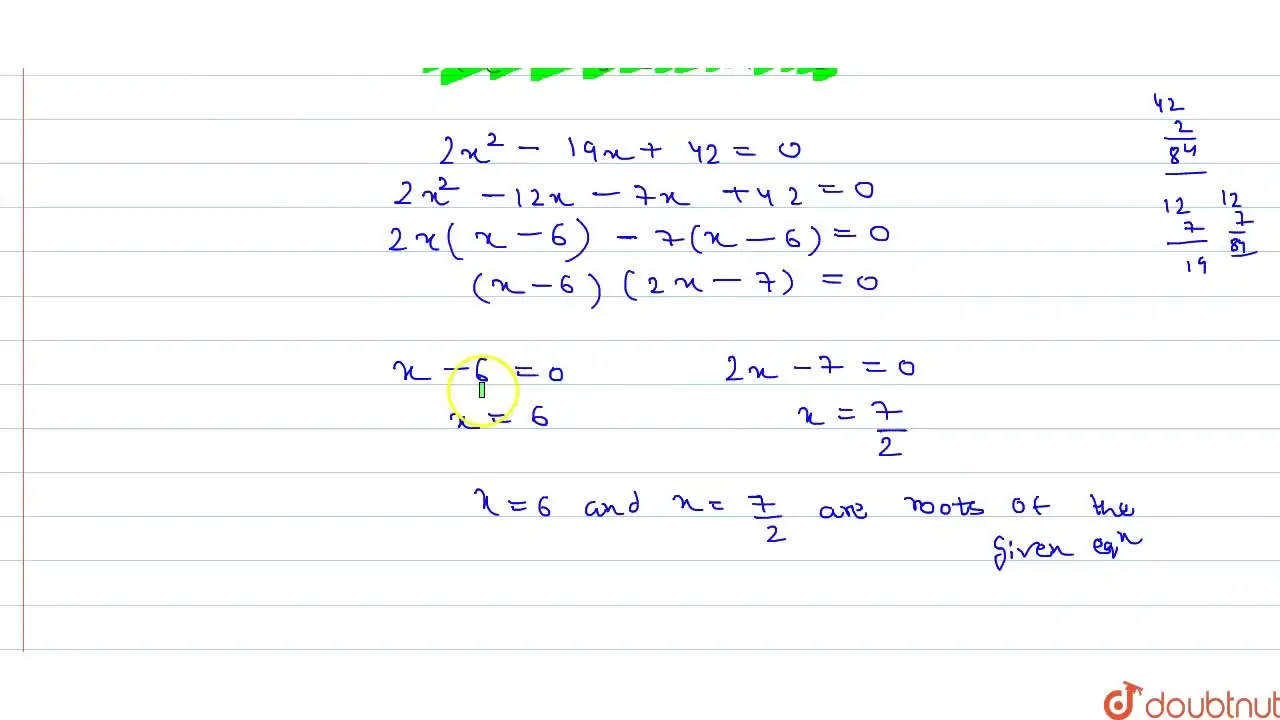 2x² - 19x + 42 = 0
2x² - 12x - 7x + 42 = 0
2x(x - 6) - 7(x - 6) = 0
(x - 6) (2x - 7) = 0
x - 6 = 0
x = 6
2x - 7 = 0
x = 7/2
x = 6 and x = 7/2 are roots of the
given eqⁿ
42
2
84
12
7
19
12
7
84
doubtnut